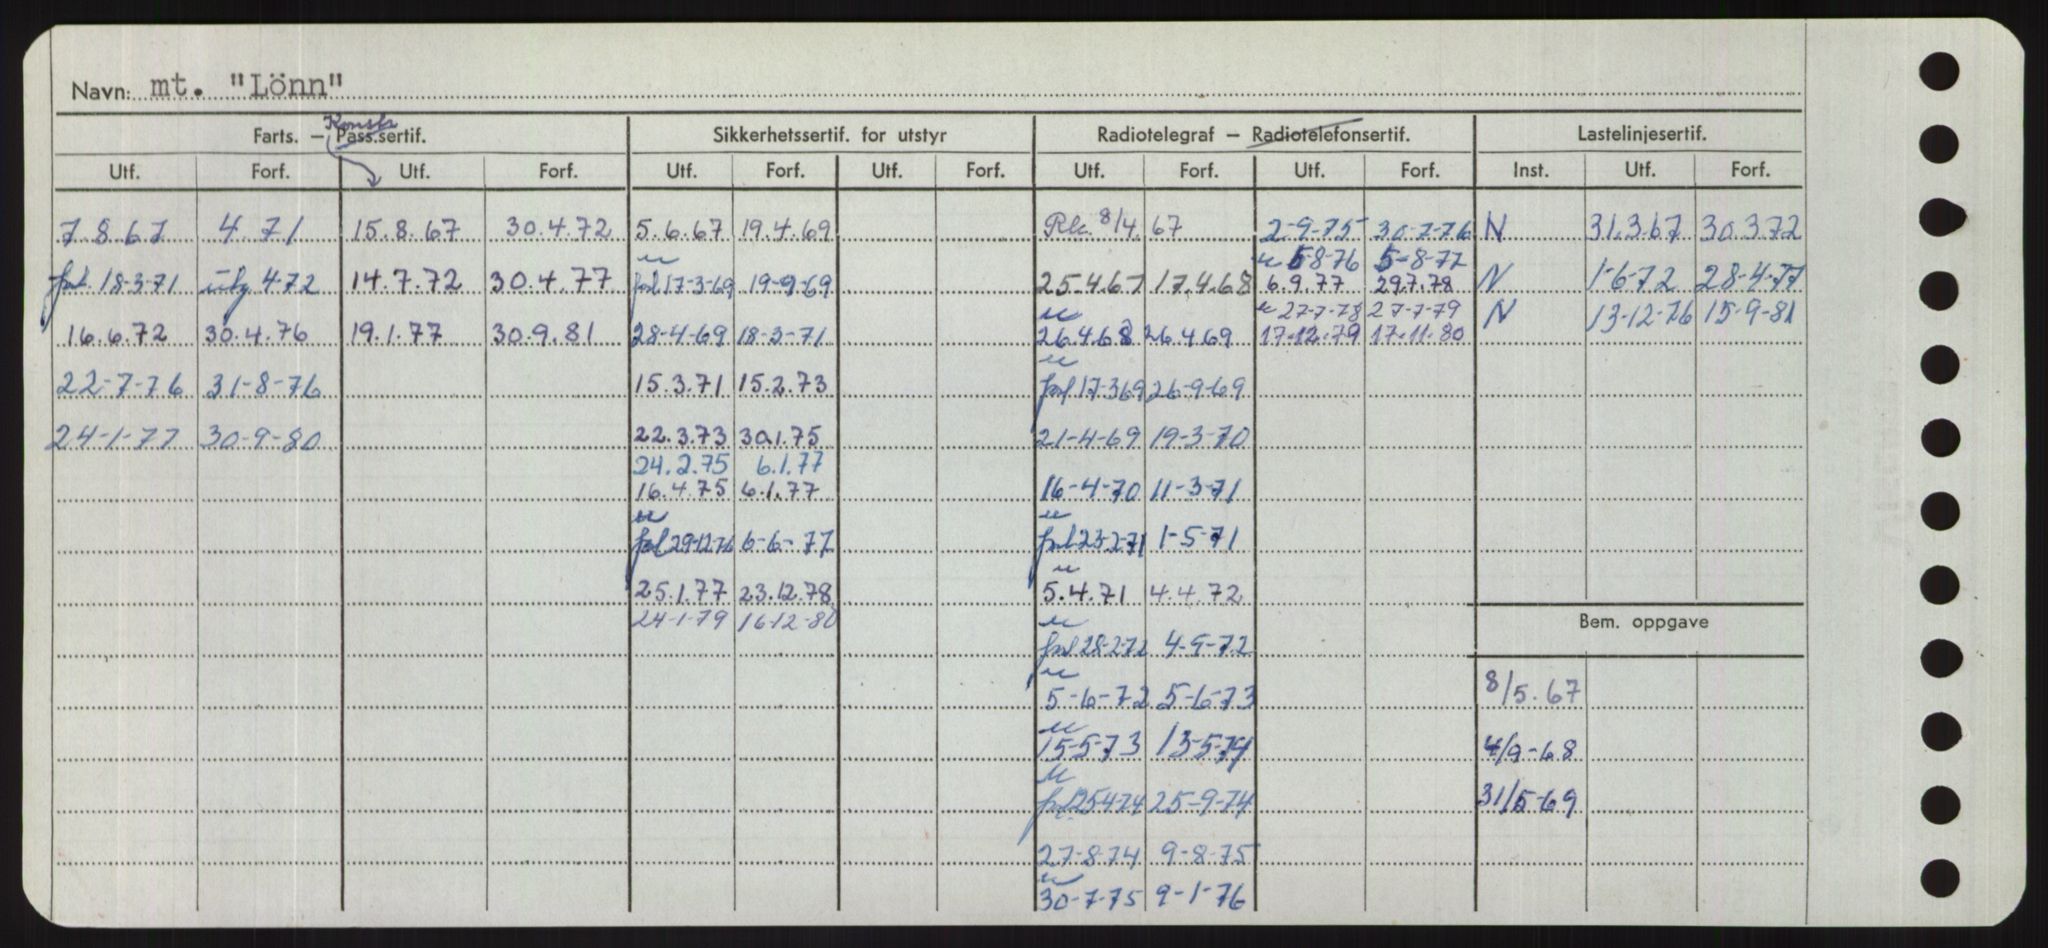 Navn: mt. "Lönn"
Konstr
Farts. – Pass.sertif. Sikkerhetssertif. for utstyr Radiotelegraf – Radiotelefonsertif. Lastelinjesertif.
Utf. Forf. Utf. Forf. Utf. Forf. Utf. Forf. Utf. Forf. Utf. Forf. Inst. Utf. Forf.
7.8.67 4.71 15.8.67 30.4.72 5.6.67 19.4.69 8/4 67 2-9-75 30-7-76 N 31.3.67 30.3.72
5-8-76 5-8-77
18-3-71 4-72 14.7.72 30.4.77 17-3-69 19-9-69 25.4.67 17.4.68 6.9.77 29.7.78 N 1-6-72 28-4-77
27-7-78 27-7-79
16.6.72 30.4.76 19.1.77 30.9.81 28-4-69 18-3-71 26.4.68 26.4.69 17-12-79 17-11-80 N 13-12-76 15-9-81
22-7-76 31-8-76 15.3.71 15.2.73 17-3-69 26-9-69
24-1-77 30-9-80 22.3.73 30.1.75 21-4-69 19-3-70
24.2.75 6.1.77
16.4.75 6.1.77 16-4-70 11-3-71
29-12-76 6-6-77 23-2-71 1-5-71
25.1.77 23.12.78 5.4.71 4.4.72
24-1-79 16-12-80
Bem. oppgave
28-2-72 4-9-72
5-6-72 5-6-73 8/5.67
15-5-73 13-5-74 4/9-68
25-4-74 25-9-74 31/5-69
27-8-74 9-8-75
30-7-75 9-1-76